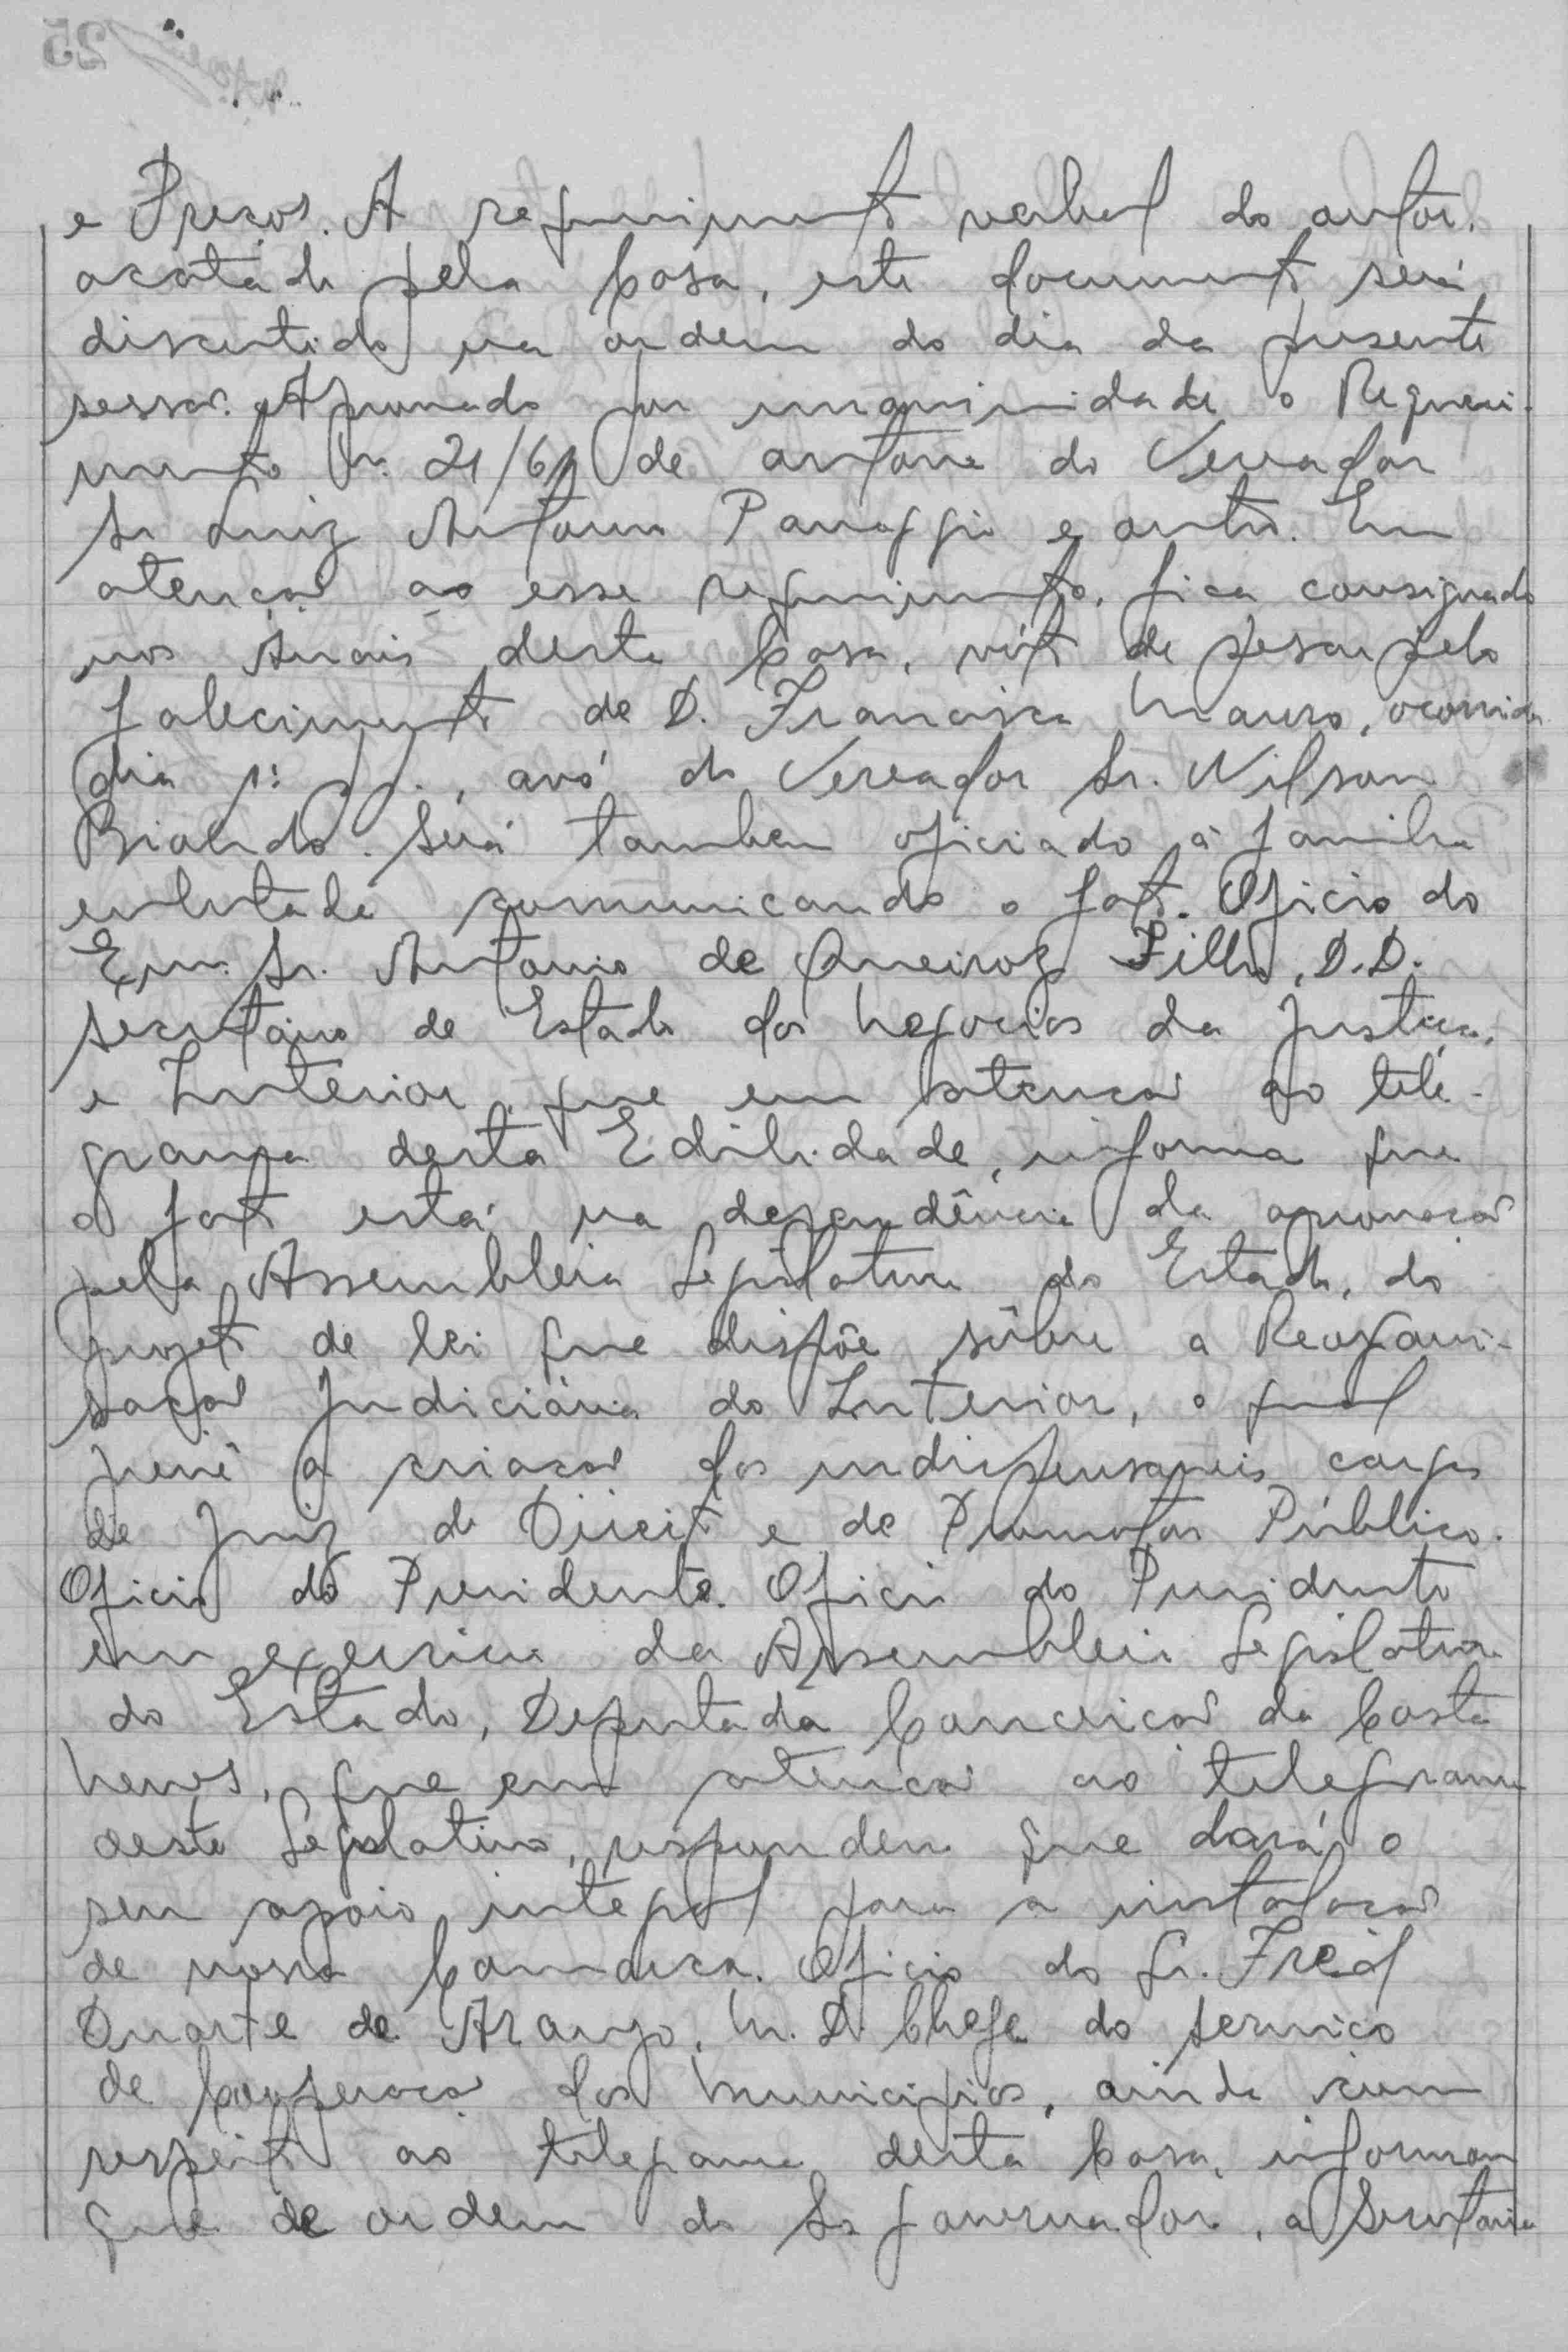 e Preços. A requerimento verbal do autor,
acatado pela Casa, este documento será
discutido na ordem do dia da presente
sessão. Aprovado por unanimidade o Requeri-
mento n. 21/61 de autoria do Vereador
Sr Luiz Antonio Panaggio e outro. Em
atenção ao esse requerimento, fica consignado
nos Anais desta Casa, vóto de pesar pelo
falecimento de D. Francisca Mauro, ocorrido
dia 1º p.p., avó do Vereador Sr. Nilson
Será também oficiado a familia
enlutada comunicando o fato. Oficio do
Exm. Sr. Antonio de Queiroz Filho, D.D.
Secretário de Estado dos Negocios da Justiça,
e Interior, que em atenção ao tele-
grama desta Edilidade, informa que
o fato está na dependência da aprovação
pela Assembleia Legislativa do Estado, do
projeto de lei que dispõe sôbre a Reorgani-
sação Judiciária do Interior, o qual
prevê a criação dos indispensaveis cargos
de Juiz de Direito e de Promotor Público.
Oficio do Presidente. Oficio do Presidente
em exercicio da Assembleia Legislativa
do Estado, Deputada Conceicão da Costa
Neves, que em atenção ao telegrama
deste Legislativo, respondeu que dará o
seu apoio integral para a instalação
de nossa Comarca. Oficio do Sr. Freid
Duarte de Araujo, M. D. Chefe do Serviço
de Cooperação dos Municipios, ainda com
respeito ao telegrama desta Casa, informou
que de ordem do Sr Governador, a Secretaria